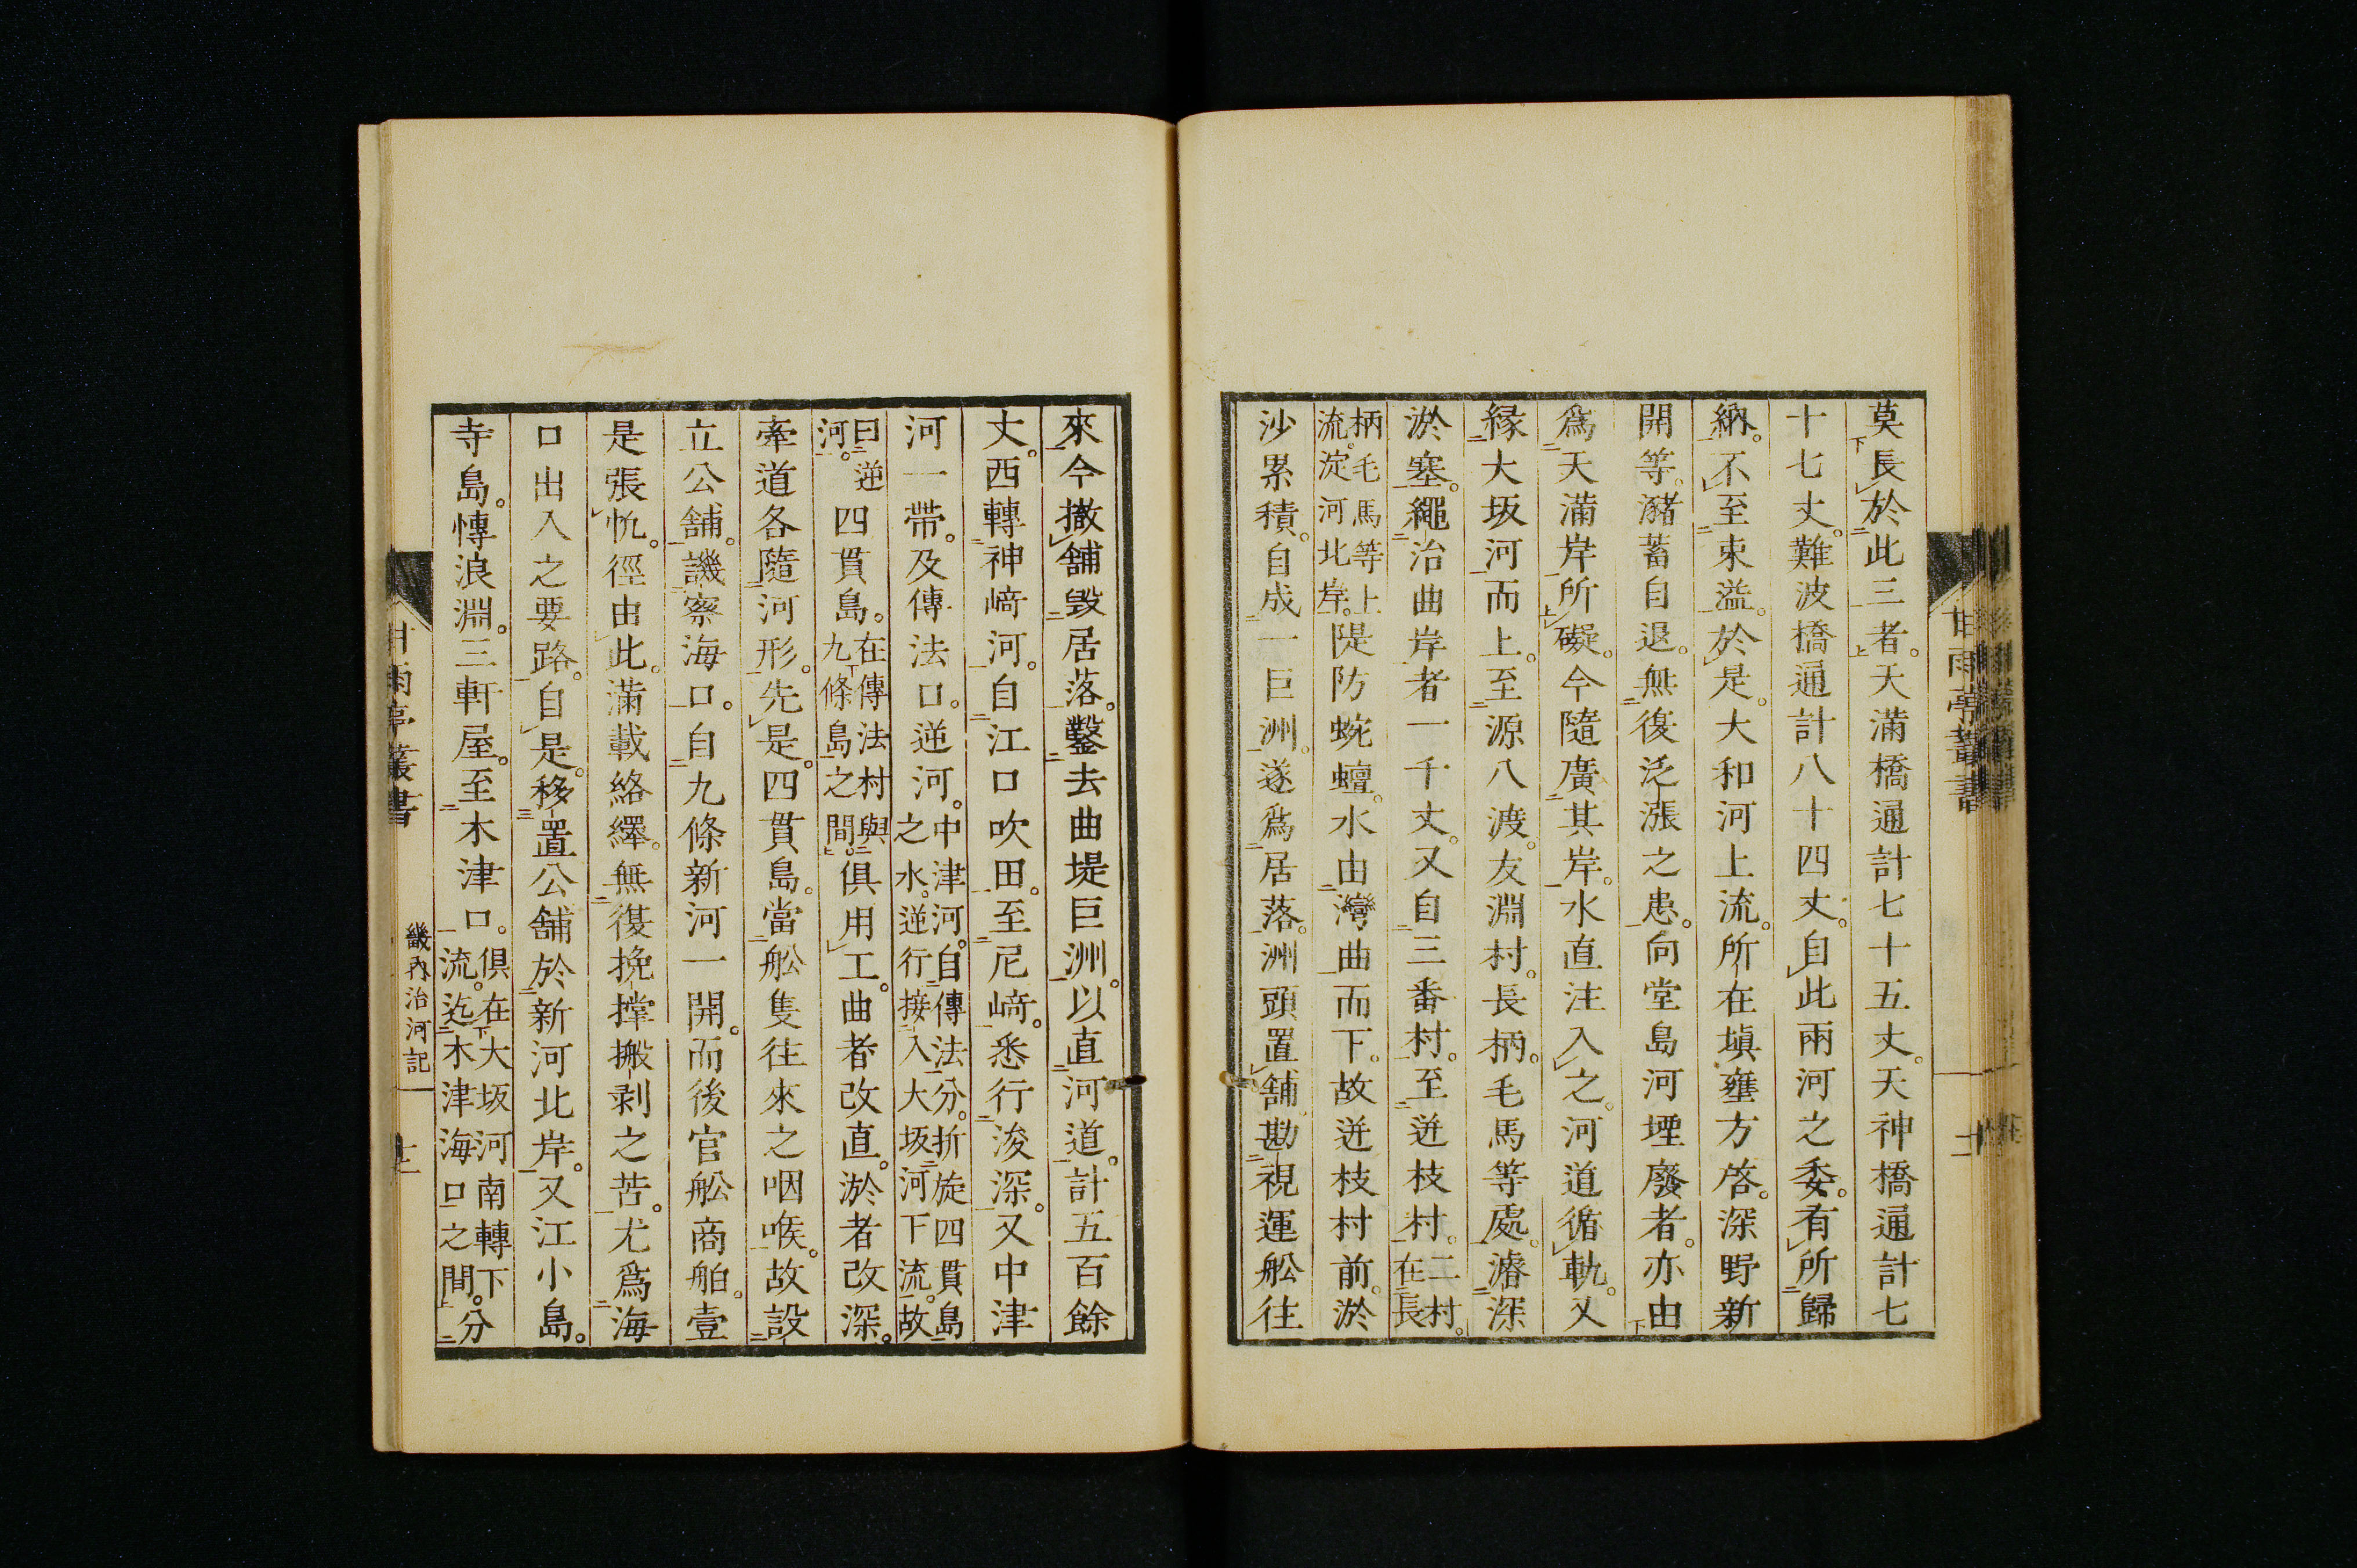 莫長於此三者。天滿橋通計七十五丈。天神橋通計七
十七丈。難波橋通計八十四丈。自此兩河之委。有所歸
納。不至束溢。於是。大和河上流。所在塡壅方啓。深野新
開等。瀦蓄自退。無復泛漲之患。向堂島河堙廢者。亦由
爲天滿岸所礙。今隨廣其岸。水直注入之。河道循軌。又
緣大坂河而上。至源八渡。友淵村。長柄。毛馬等處。濬深
淤塞。繩治曲岸者一千丈。又自三番村。至逆枝村。二村。在長
柄毛馬等上流。淀河北岸。隄防蜿蟺。水由灣曲而下。故逆枝村前。淤
沙累積。自成一巨洲。遂爲居落。洲頭置舖。勘視運舩往
來今撤舖毀居落。鑿去曲堤巨洲。以直河道。計五百餘
丈。西轉神﨑河。自江口吹田。至尼﨑。悉行浚深。又中津
河一帶。及傳法口。逆河。中津河。自傳法分。折旋四貫島之水。逆行接入大坂河下流。故
曰逆河。四貫島。在傳法村與九條島之間。俱用工。曲者改直。淤者改深。
牽道各隨河形。先是。四貫島。當舩隻往來之咽喉。故設
立公舖。譏察海口。自九條新河一開。而後官舩商舶。壹
是張帆。徑由此。滿載絡繹。無復挽撑搬剥之苦。尤爲海
口出入之要路。自是。移置公舖於新河北岸。又江小島。
寺島。慱浪淵。三軒屋。至木津口。俱在大坂河南轉下流。迄木津海口之間。分
甘雨亭叢書
畿內治河記
十二